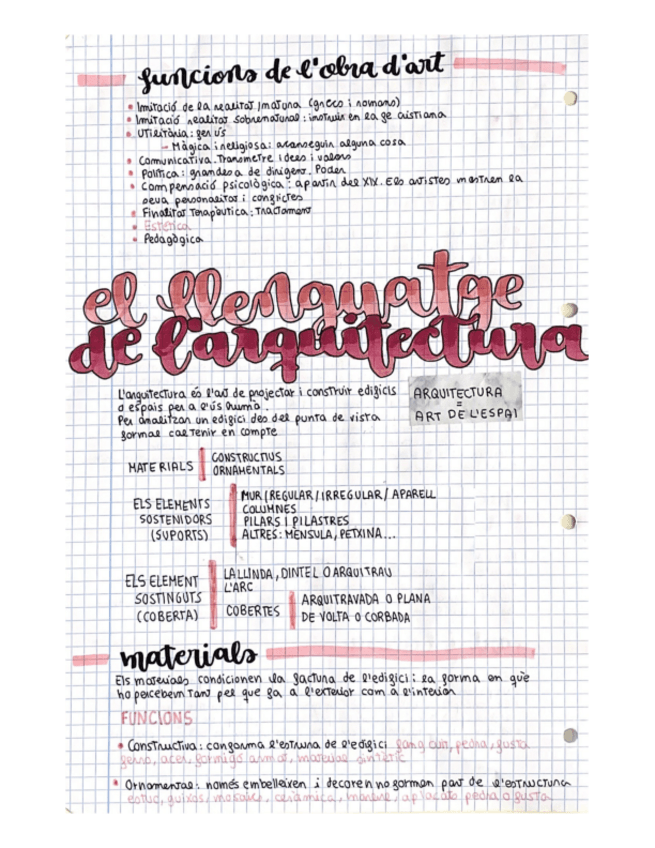 funcions de l'obra d'art
Imitació de la realitat/natura (grecs i romans)
Imitació realitat sobrenatural: instruir en la fe cristiana
Utilitària: per ús
→ Màgica i religiosa: aconseguir alguna cosa
Comunicativa. Transmetre idees i valors
Política: grandesa de dirigent. Poder
Compensació psicològica: a partir del XIX. Els artistes mostren la
seva personalitat i conflictes
Finalitat Terapèutica: Tractament
Estètica
Pedagògica
el llenguatge
de l'arquitectura
L'arquitectura és l'art de projectar i construir edificis
o espais per a l'ús humà.
Per analitzar un edifici des del punta de vista
formal cal tenir en compte
ARQUITECTURA
=
ART DE L'ESPAI
MATERIALS
CONSTRUCTIUS
ORNAMENTALS
ELS ELEMENTS
SOSTENIDORS
(SUPORTS)
MUR (REGULAR/IRREGULAR/ APARELL
COLUMNES
PILARS I PILASTRES
ALTRES: MÈNSULA, PETXINA...
ELS ELEMENT
SOSTINGUTS
(COBERTA)
LA LLINDA, DINTEL O ARQUITRAU
L'ARC
COBERTES
ARQUITRAVADA O PLANA
DE VOLTA O CORBADA
materials
Els materials condicionen la factura de l'edifici: la forma en què
ho percebem tant pel que fa a l'exterior com a l'interior
FUNCIONS
Constructiva: conforma l'estruna de l'edifici fang cuit, pedra, fusta
ferro, acer, formigó armat, material sintètic
Ornamental: només embelleixen i decoren no formen part de l'estructura
estuc, guixos, mosaics, ceràmica, marbre, aplacats pedra o fusta